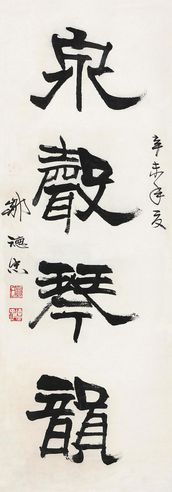 泉聲琴韻
辛未年夏
鄒德忠